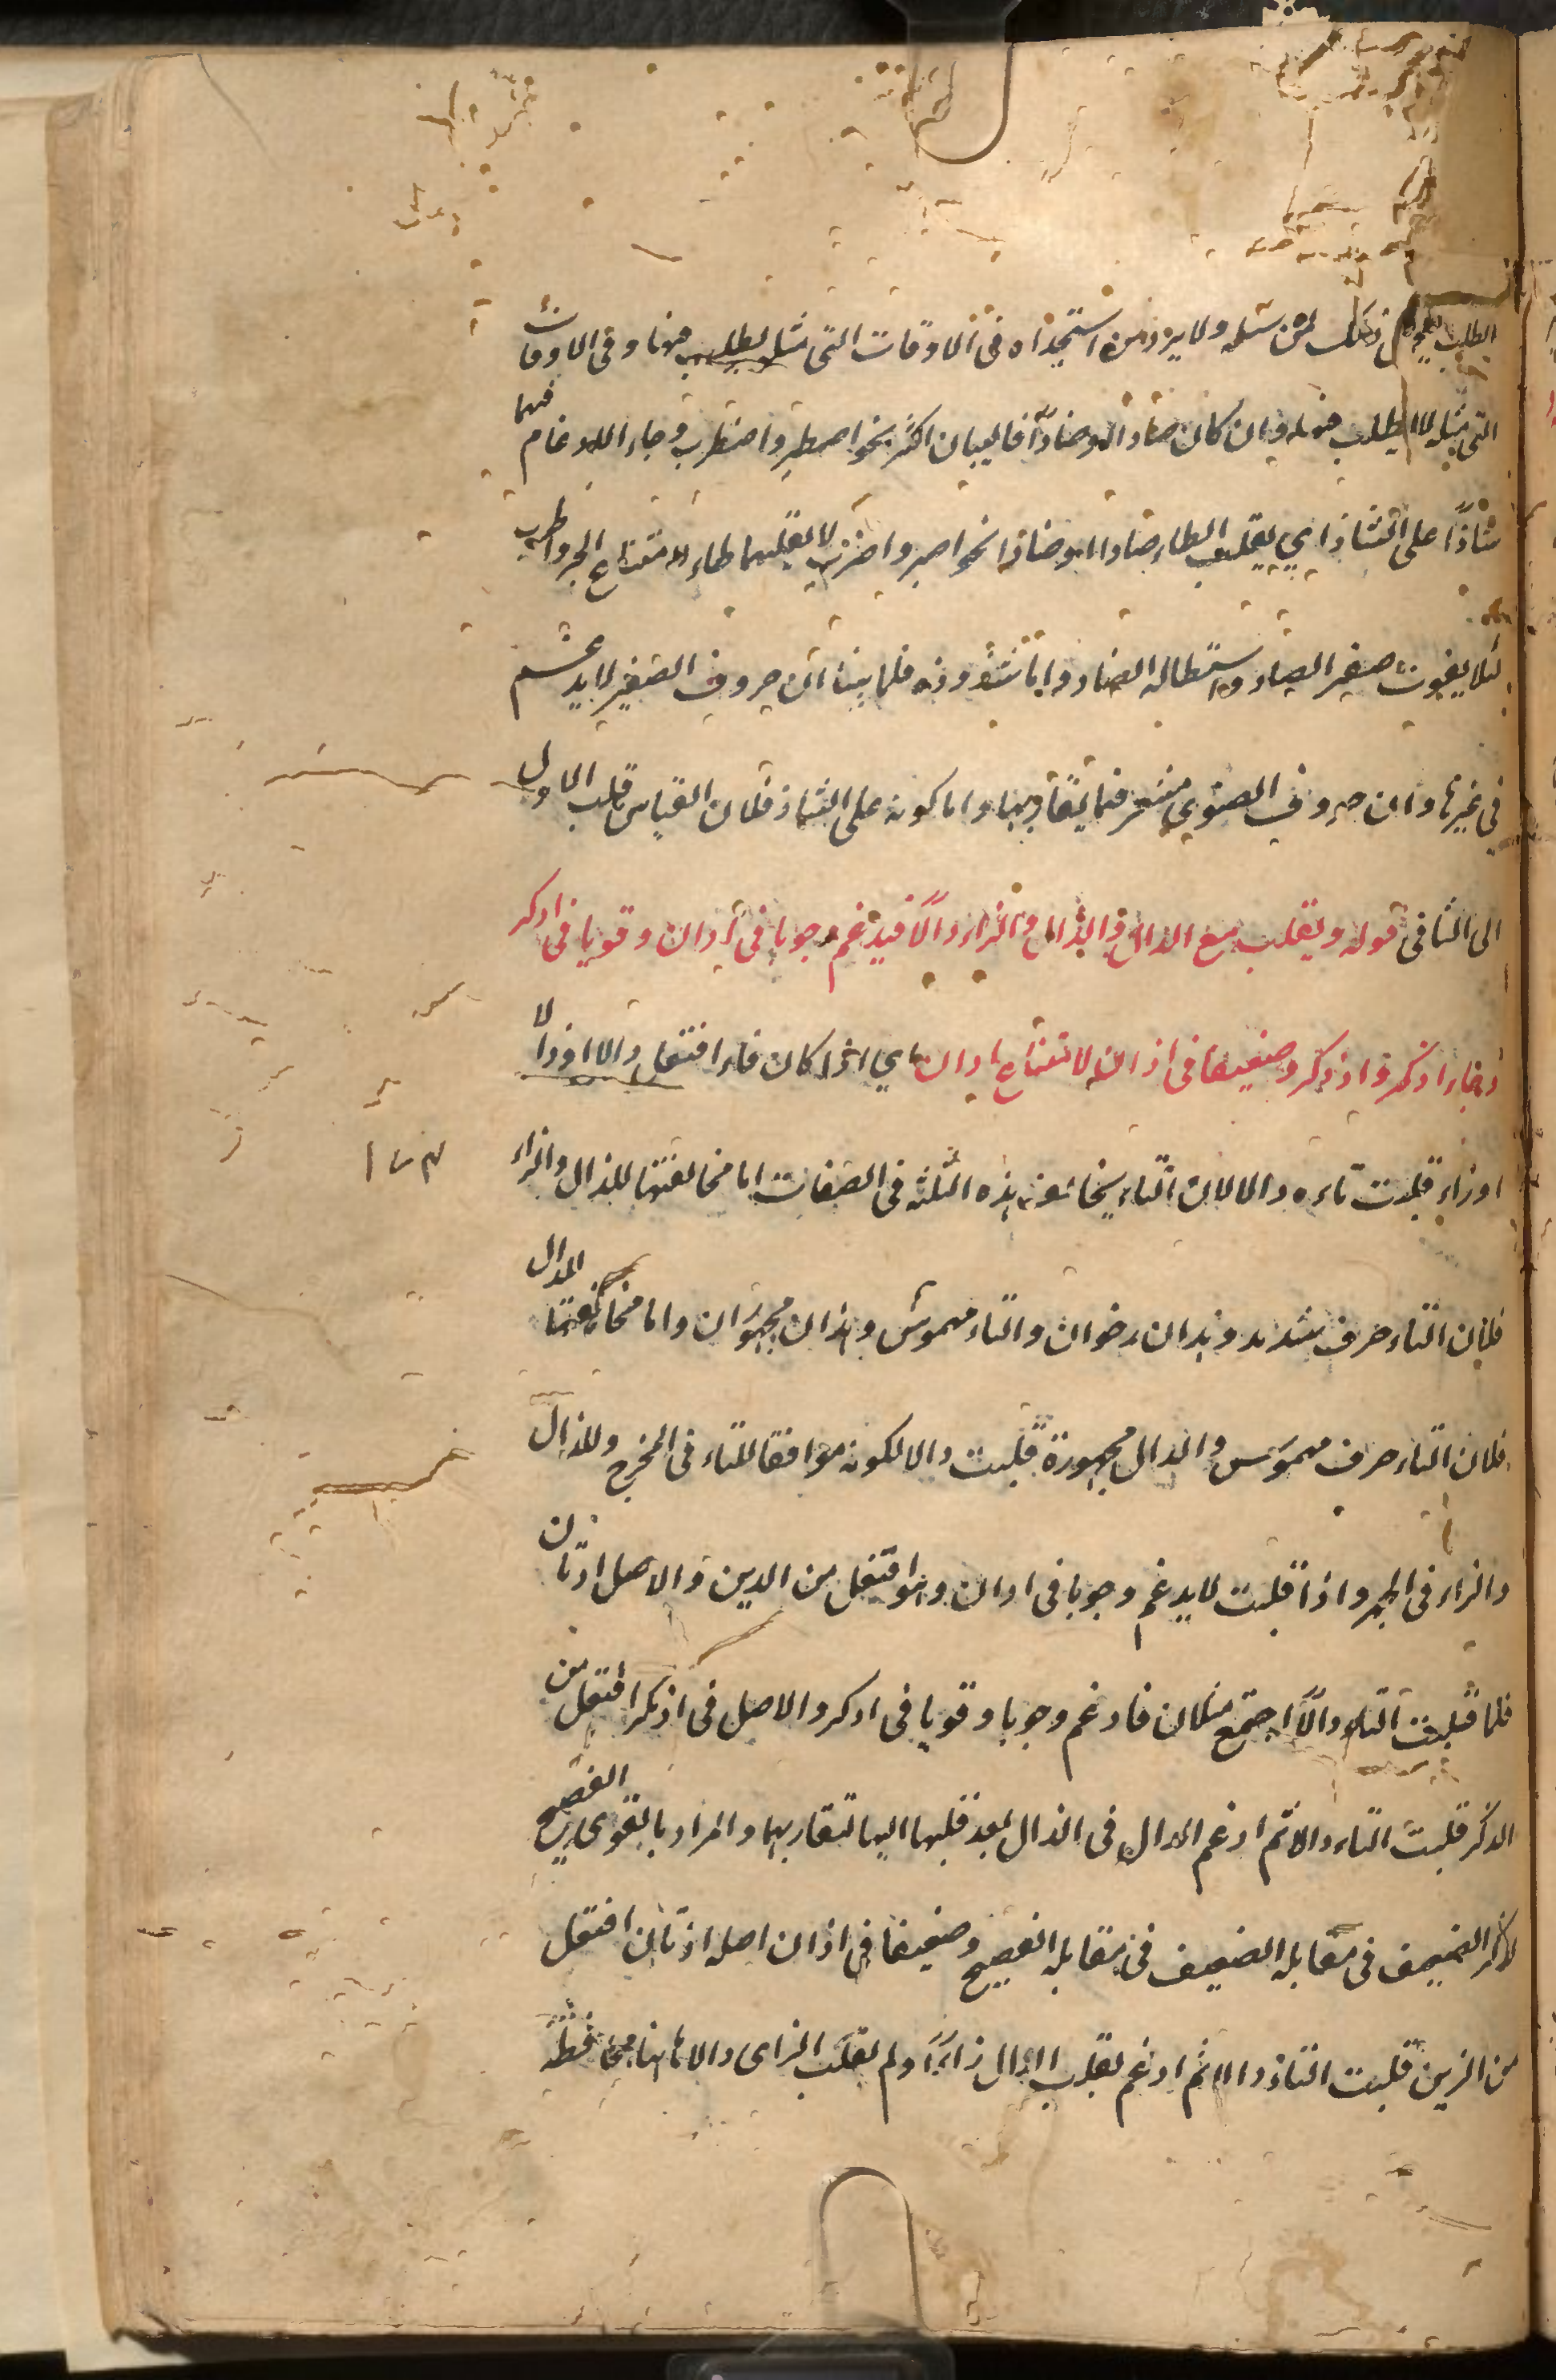 الطلب ذلك لمن سئله ولا يرد من استجداه فى الاوقات التى مثله يطلب منها وفى الاوقات
التى مثله لا يطلب منها وان كان صادا او ضادا فالبيان اكثر نحو اصطبر واضطرب وجاء الادغام فيهما
شاذا على الشاذ اى بقلب الطاء صادا او ضادا نحو اصبر واضرب لا بقلبهما طاء لامتناع اطبر واطرب
لئلا يفوت صفير الصاد واستطالة الضاد واما شذوذه فلما بينا ان حروف الصفير لا يدغم
فى غيرها وان حروف ضوى مشفر فيما يقاربها واما كونه على الشاذ فلان القياس قلب الاول
الى الثانى قوله وتقلب مع الدال والذال والزاء دالا فيدغم وجوبا فى ادان وقويا فى ادكر
وجاء اذكر واذدكر وضعيفا فى ازان لامتناع ادان اى اذا كان فاء افتعل دالا او ذالا
او زاء قلبت تاءه دالا لان التاء يخالف هذه الثلثة فى الصفات اما مخالفتها للذال والزاء
فلان التاء حرف شديد وهذان رخوان والتاء مهموس وهذان مجهوران واما مخالفتها الدال
فلان التاء حرف مهموس والدال مجهورة قلبت دالا لكونه موافقا للتاء فى المخرج وللذال
والزاء فى الجهر واذا قلبت لا يدغم وجوبا فى ادان وهو افتعل من الدين والاصل ادتان
فلما قلبت التاء دالا اجتمع مثلان فادغم وجوبا وقويا فى ادكر والاصل فى اذتكر افتعل من
الذكر قلبت التاء دالا ثم ادغم الدال فى الذال بعد قلبها اليها لتقاربهما والمراد بالقوى الفصيح
لذكر الضعيف فى مقابله الضعيف فى مقابلة الفصيح وضعيفا فى ازان اصله ازتان افتعل
من الزين قلبت التاء دالا ثم ادغم بقلب الدال زاء ولم تقلب الزاى دالا هاهنا محافظة